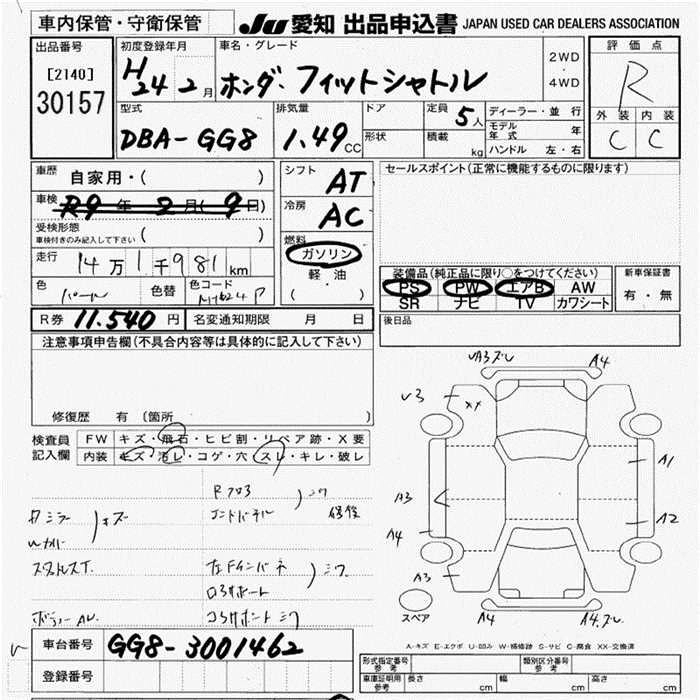 車内保管・守衛保管
JU 愛知 出品申込書 JAPAN USED CAR DEALERS ASSOCIATION
出品番号
[2140]
30157
初度登録年月
H24 2月
車名・グレード
ホンダ・フィットシャトル
2WD
・
4WD
評価点
R
外装 内装
C C
型式
DBA-GG8
排気量
1.49CC
ドア
形状
定員 5人
積載 kg
ディーラー・並行
モデル年式 年
ハンドル 左・右
車歴 自家用・( )
車検 R9年2月(9日)
受検形態
車検付きのみ記入して下さい ( )
走行 14万1千981km
色 パール
色替
色コード NH624P
シフト AT
冷房 AC
燃料
ガソリン
軽・油
( )
セールスポイント(正常に機能するものに限ります)
装備品(純正品に限り○をつけてください)
PS PW エアB AW
SR ナビ TV カワシート
新車保証書
有・無
R券 11.540円
名変通知期限 月 日
後日品
注意事項申告欄(不具合内容等は具体的に記入して下さい)
修復歴 有〔箇所
検査員記入欄
FW キズ・飛石・ヒビ割・リペア跡・X要
内装 キズ・汚レ・コゲ・穴・スレ・キレ・破レ
シワ
修後
キズ
シワ
シワ
車台番号 GG8-3001462
登録番号
A3ズレ A4
√3 XX
A1
A3
A2
A4
A3
スペア
A4 A4.ズレ
A-キズ E-エクボ U-凹み W-補修跡 S-サビ C-腐食 XX-交換済
形式指定番号 参考
類別区分番号 参考
車庫証明用 参考 長さ cm 幅 cm 高さ cm